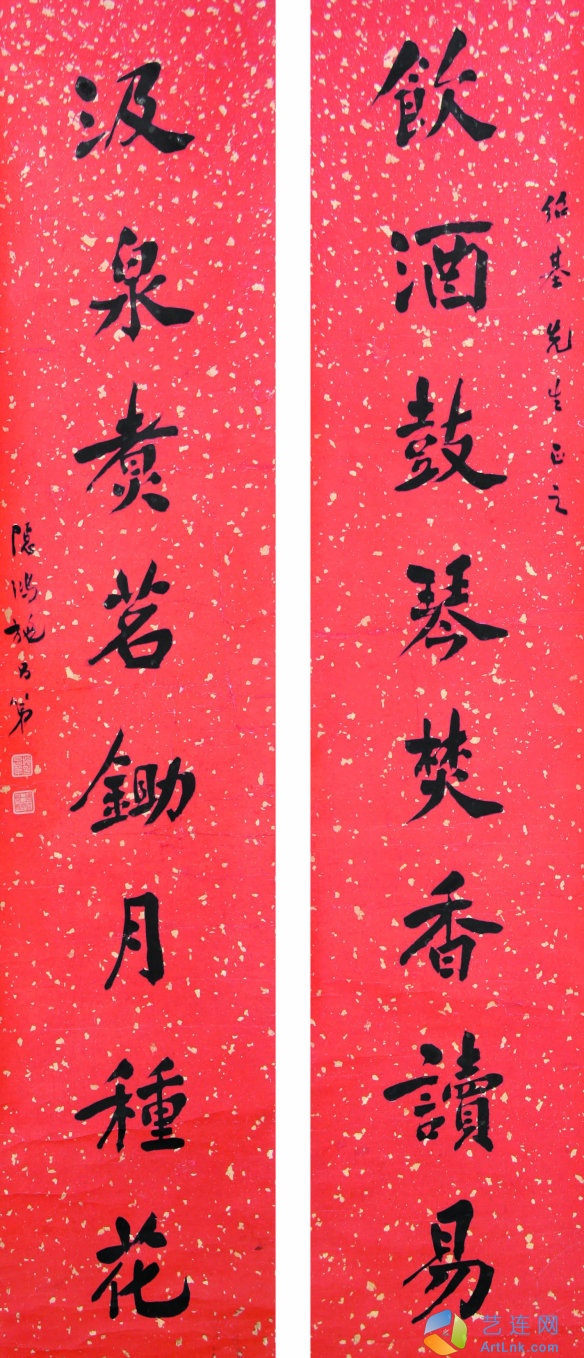 飲酒鼓琴焚香讀易
紹基先生正之
汲泉煮茗鋤月種花
隱鴻施力第
艺连网
ArtLnk.com